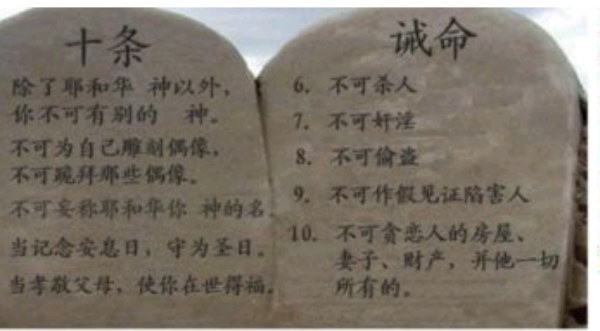 十条
除了耶和华 神以外，
你不可有别的 神。
不可为自己雕刻偶像，
不可跪拜那些偶像。
不可妄称耶和华你 神的名。
当记念安息日，守为圣日。
当孝敬父母，使你在世得福。
诫命
6. 不可杀人
7. 不可奸淫
8. 不可偷盗
9. 不可作假见证陷害人
10. 不可贪恋人的房屋、
妻子、财产，并他一切
所有的。